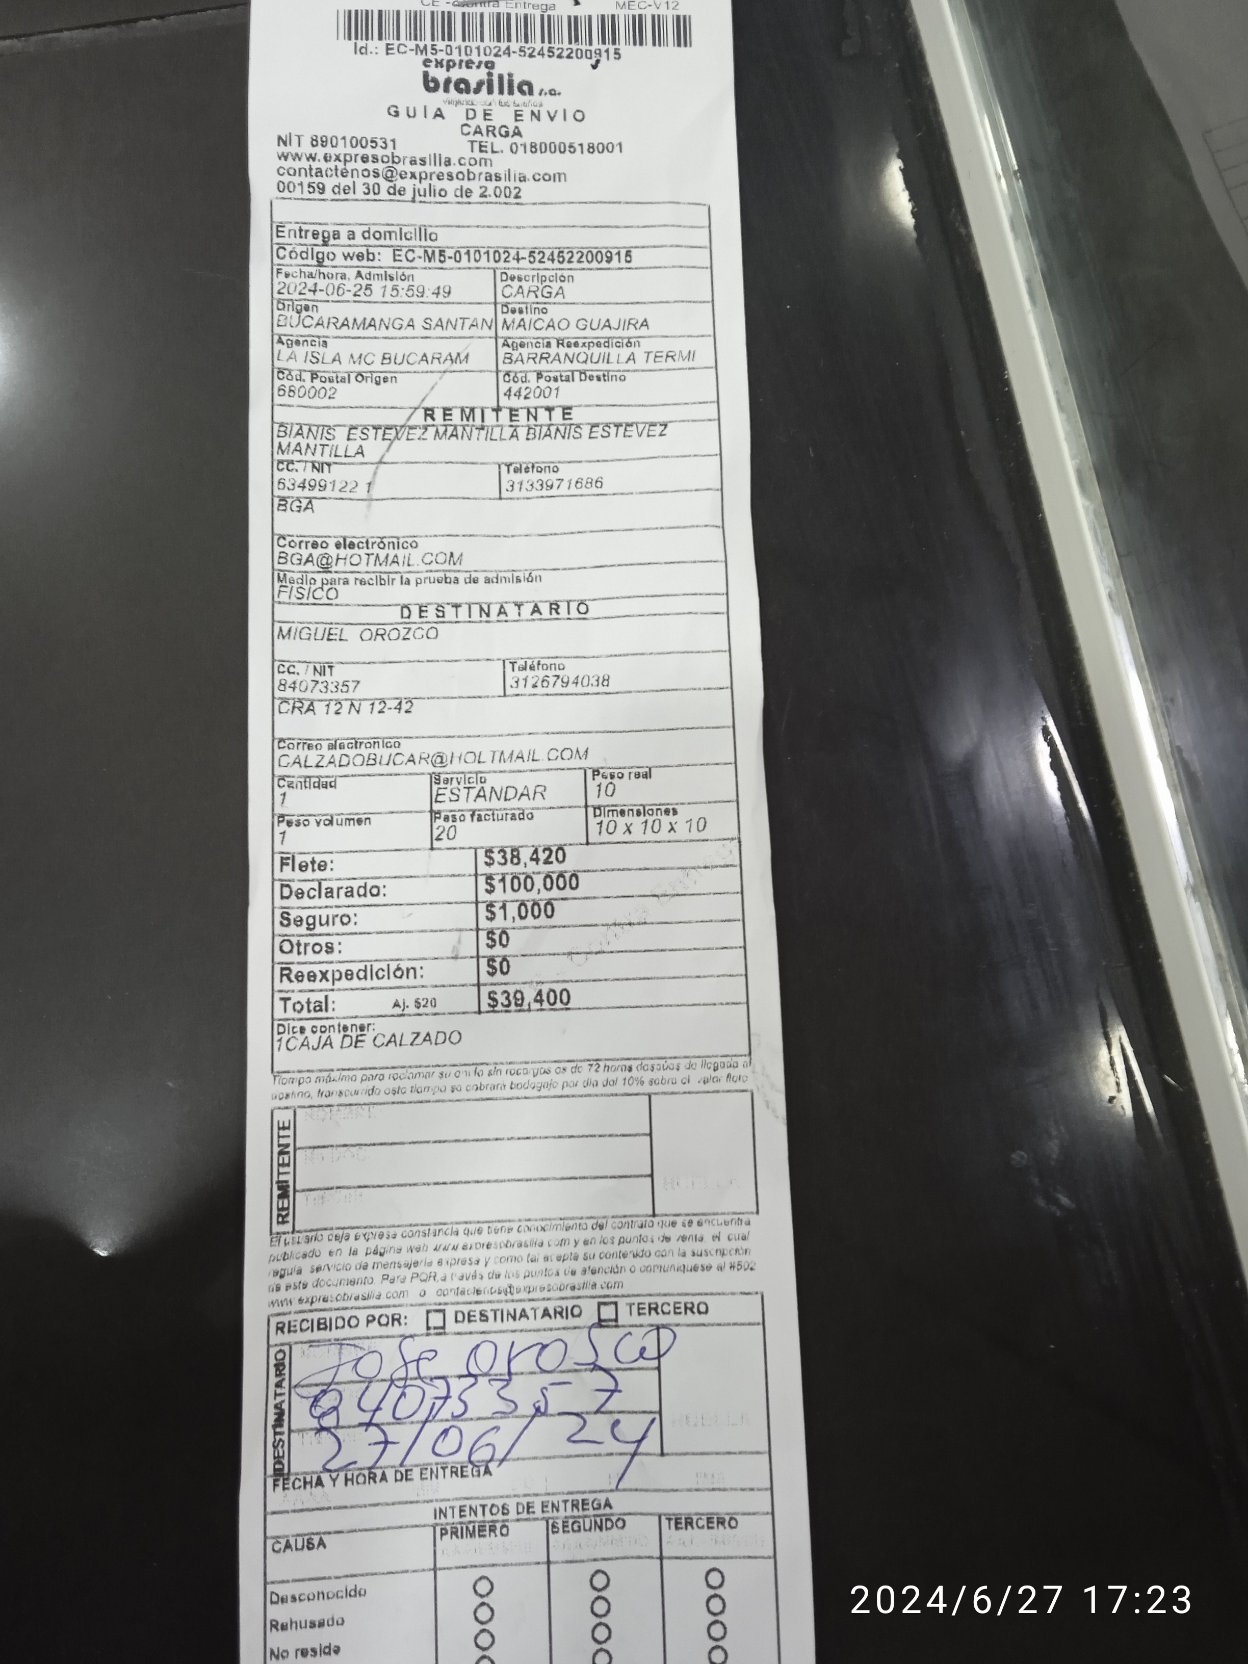 CE - Contra Entrega MEC-V12
Id.: EC-M5-0101024-52452200915
expreso
brasilia s.a.
GUIA DE ENVIO
CARGA
NIT 890100531 TEL. 018000518001
www.expresobrasilia.com
contactenos@expresobrasilia.com
00159 del 30 de julio de 2.002
Entrega a domicilio
Código web: EC-M5-0101024-52452200915
Fecha/hora. Admisión Descripción
2024-06-25 15:59:49 CARGA
Origen Destino
BUCARAMANGA SANTAN MAICAO GUAJIRA
Agencia Agencia Reexpedición
LA ISLA MC BUCARAM BARRANQUILLA TERMI
Cód. Postal Origen Cód. Postal Destino
680002 442001
REMITENTE
BIANIS ESTEVEZ MANTILLA BIANIS ESTEVEZ
MANTILLA
CC. / NIT Teléfono
63499122 1 3133971686
BGA
Correo electrónico
BGA@HOTMAIL.COM
Medio para recibir la prueba de admisión
FISICO
DESTINATARIO
MIGUEL OROZCO
CC. / NIT Teléfono
84073357 3126794038
CRA 12 N 12-42
Correo electronico
CALZADOBUCAR@HOLTMAIL.COM
Cantidad Servicio Peso real
1 ESTANDAR 10
Peso volumen Peso facturado Dimensiones
1 20 10 x 10 x 10
Flete: $38,420
Declarado: $100,000
Seguro: $1,000
Otros: $0
Reexpedición: $0
Total: Aj. $20 $39,400
Dice contener:
1CAJA DE CALZADO
Tiempo máximo para reclamar su envío sin recargos es de 72 horas despúes de llegada a
destino, transcurrido este tiempo se cobrará bodegaje por día del 10% sobre el valor flete
REMITENTE
HUELLA
El usuario deja expresa constancia que tiene conocimiento del contrato que se encuentra
publicado en la página web www.expresobrasilia.com y en los puntos de venta, el cual
regula servicio de mensajería expresa y como tal acepta su contenido con la suscripción
de este documento. Para PQR a través de los puntos de atención o comuniquese al #502
www.expresobrasilia.com o contactenos@expresobrasilia.com
RECIBIDO POR: DESTINATARIO TERCERO
DESTINATARIO
Jose orosco
84073357
27/06/24
HUELLA
FECHA Y HORA DE ENTREGA
INTENTOS DE ENTREGA
CAUSA PRIMERO SEGUNDO TERCERO
Desconocido
Rehusado
No reside
2024/6/27 17:23